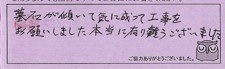 墓石が傾いて気に成って工事を
お願いしました本当に有り難うございました
ご協力ありがとうございました。